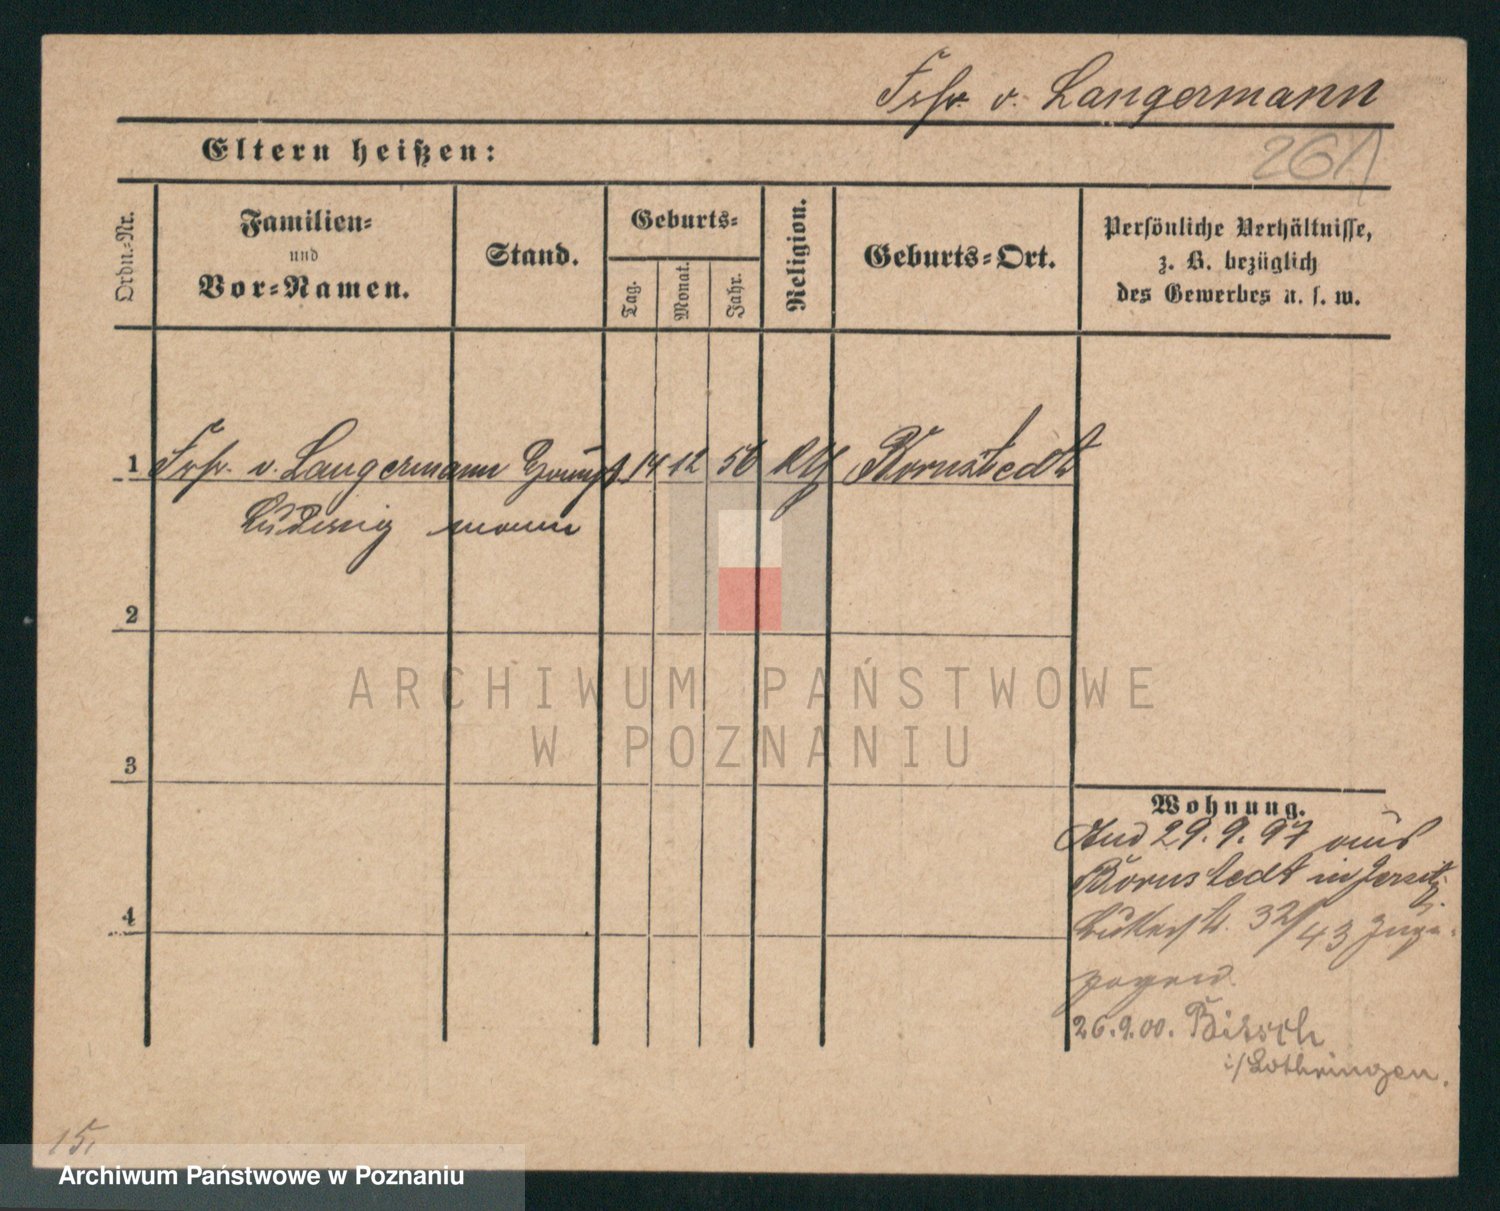 Frhr v. Langermann
Eltern heißen:
261
Ordn.-Nr.
Familien-
und
Vor-Namen.
Stand.
Geburts-
Tag.
Monat.
Jahr.
Religion.
Geburts-Ort.
Persönliche Verhältnisse,
z. B. bezüglich
des Gewerbes u. s. w.
1 Frhr. v. Langermann Haupt 14 12 56 Bornstedt
Ludwig mann
2
3
4
Wohnung.
29.9.97 aus
Bornstedt in Jersitz
32/43 Zuge-
zogen.
26.9.00. Bitsch
i/Lothringen.
15.
ARCHIWUM PAŃSTWOWE
W POZNANIU
Archiwum Państwowe w Poznaniu